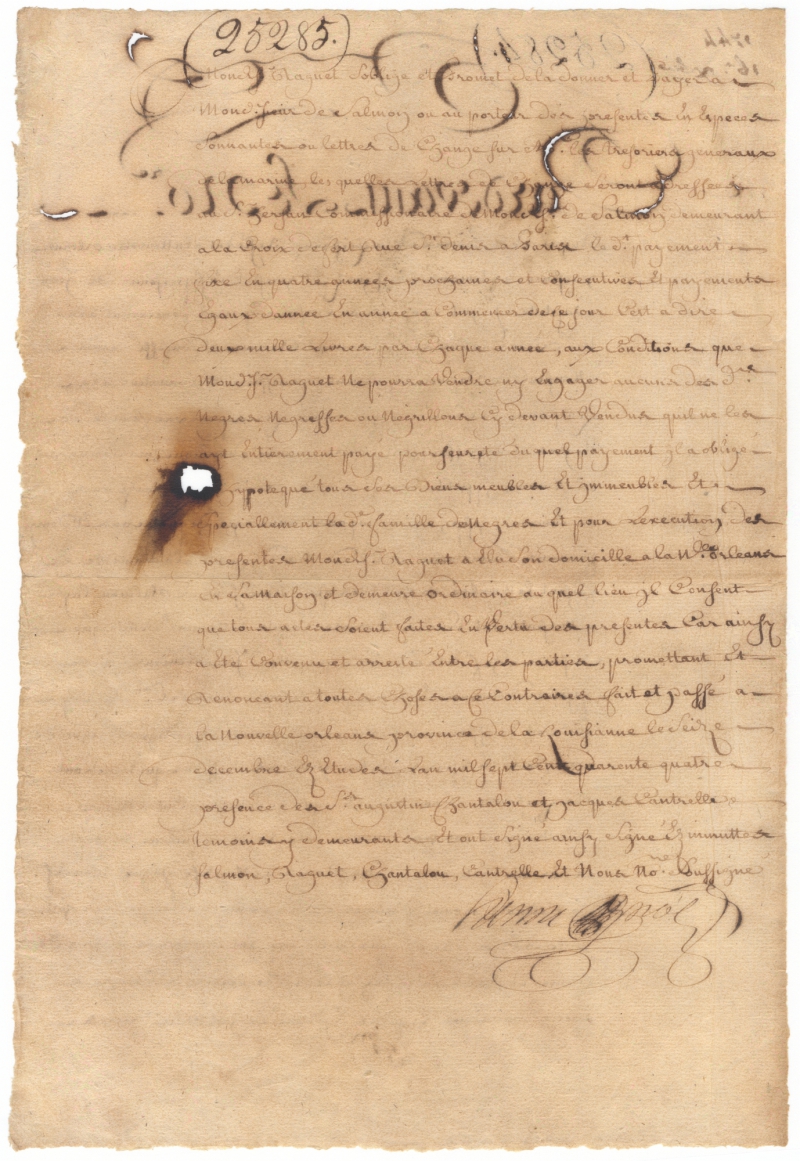 (25285.)
Mond. Sr. Raguet s'oblige et promet de la donner et payer a
Mond. Sieur de Salmon ou au porteur des presentes En Especes
Sonnantes ou lettres de Change sur les tresoriers generaux
de la marine, les quelles lettres de Change seront adressées
au Sr. Commissionaire de Mond. Sr. de Salmon demeurant
a la Croix de fert Rue St. denis a Paris le dt. payement
fixe En quatre années prochaines et Consecutives Et payements
Egaux d'année En année a Commencer de ce jour C'est a dire
deux mille Livres par Chaque année, aux Conditions que
Mond. Sr. Raguet Ne pourra Vendre ny Engager aucuns des dts.
Negres Negresses ou Negrillons Cy devant Vendus quil ne les
ayt Entierement payé pour sureté du quel payement yl a obligé
ypotequé tous ses Biens meubles Et ymmeubles Et
Speciallement la de. famille de Negres Et pour L'execution des
presentes Mond. Sr. Raguet a Elu son domicille a la Nlle. Orleans
En sa Maison et demeure ordinaire au quel lieu yl Consent
que tous actes soient faites En Vertu des presentes Car ainsy
a Eté Convenu et arresté Entre les parties, promettant Et
Renoncant a toutes Choses a Ce Contraires fait et passé a
la Nouvelle orleans province de la Louisianne le Seize
decembre Ez Etudes L'an mil sept Cent quarente quatre
presence des Srs. augustin Chantalou et Jacques Cantrelle
temoins y demeurants Et ont signé ainsy signé Ez minuttes
Salmon, Raguet, Chantalou, Cantrelle Et Nous Nore. Sussigné
Henry Nore